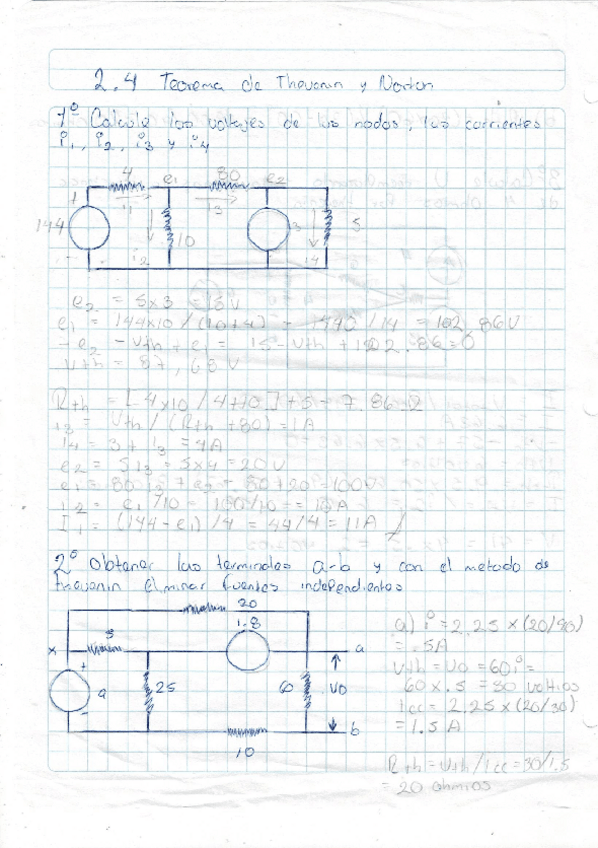 2.4 Teorema de Thevenin y Norton
1º Calcule los voltajes de los nodos, las corrientes
i1, i2, i3 y i4
4 e1 80 e2
+ i1 i3
144 10 3 5
- i2 i4
e2 = 5x3 = 15V
e1 = 144x10 / (10+4) = 1440 / 14 = 102.86V
-e2 - Vth + e1 = 15 - Vth + 102.86 = 0
Vth = 87,68 V
Rth = [4x10 / 4+10] + 5 = 7.86 Ω
i3 = Vth / (Rth + 80) = 1A
i4 = 3 + i3 = 4A
e2 = 5i3 = 5x4 = 20V
e1 = 80 i3 + e2 = 80 + 20 = 100V
i2 = e1/10 = 100/10 = 10A
I1 = (144 - e1) / 4 = 44/4 = 11A
2º Obtener las terminales a-b y con el metodo de
thevenin Eliminar fuentes independientes
20
x 5 1.8 a
+ a - 25 60 VO
10 b
a) iº = 2.25 x (20/90)
= .5A
Vth = VO = 60iº =
60 x .5 = 30 voltios
icc = 2.25 x (20/30)
= 1.5 A
Rth = Vth / icc = 30/1.5
= 20 ohmios